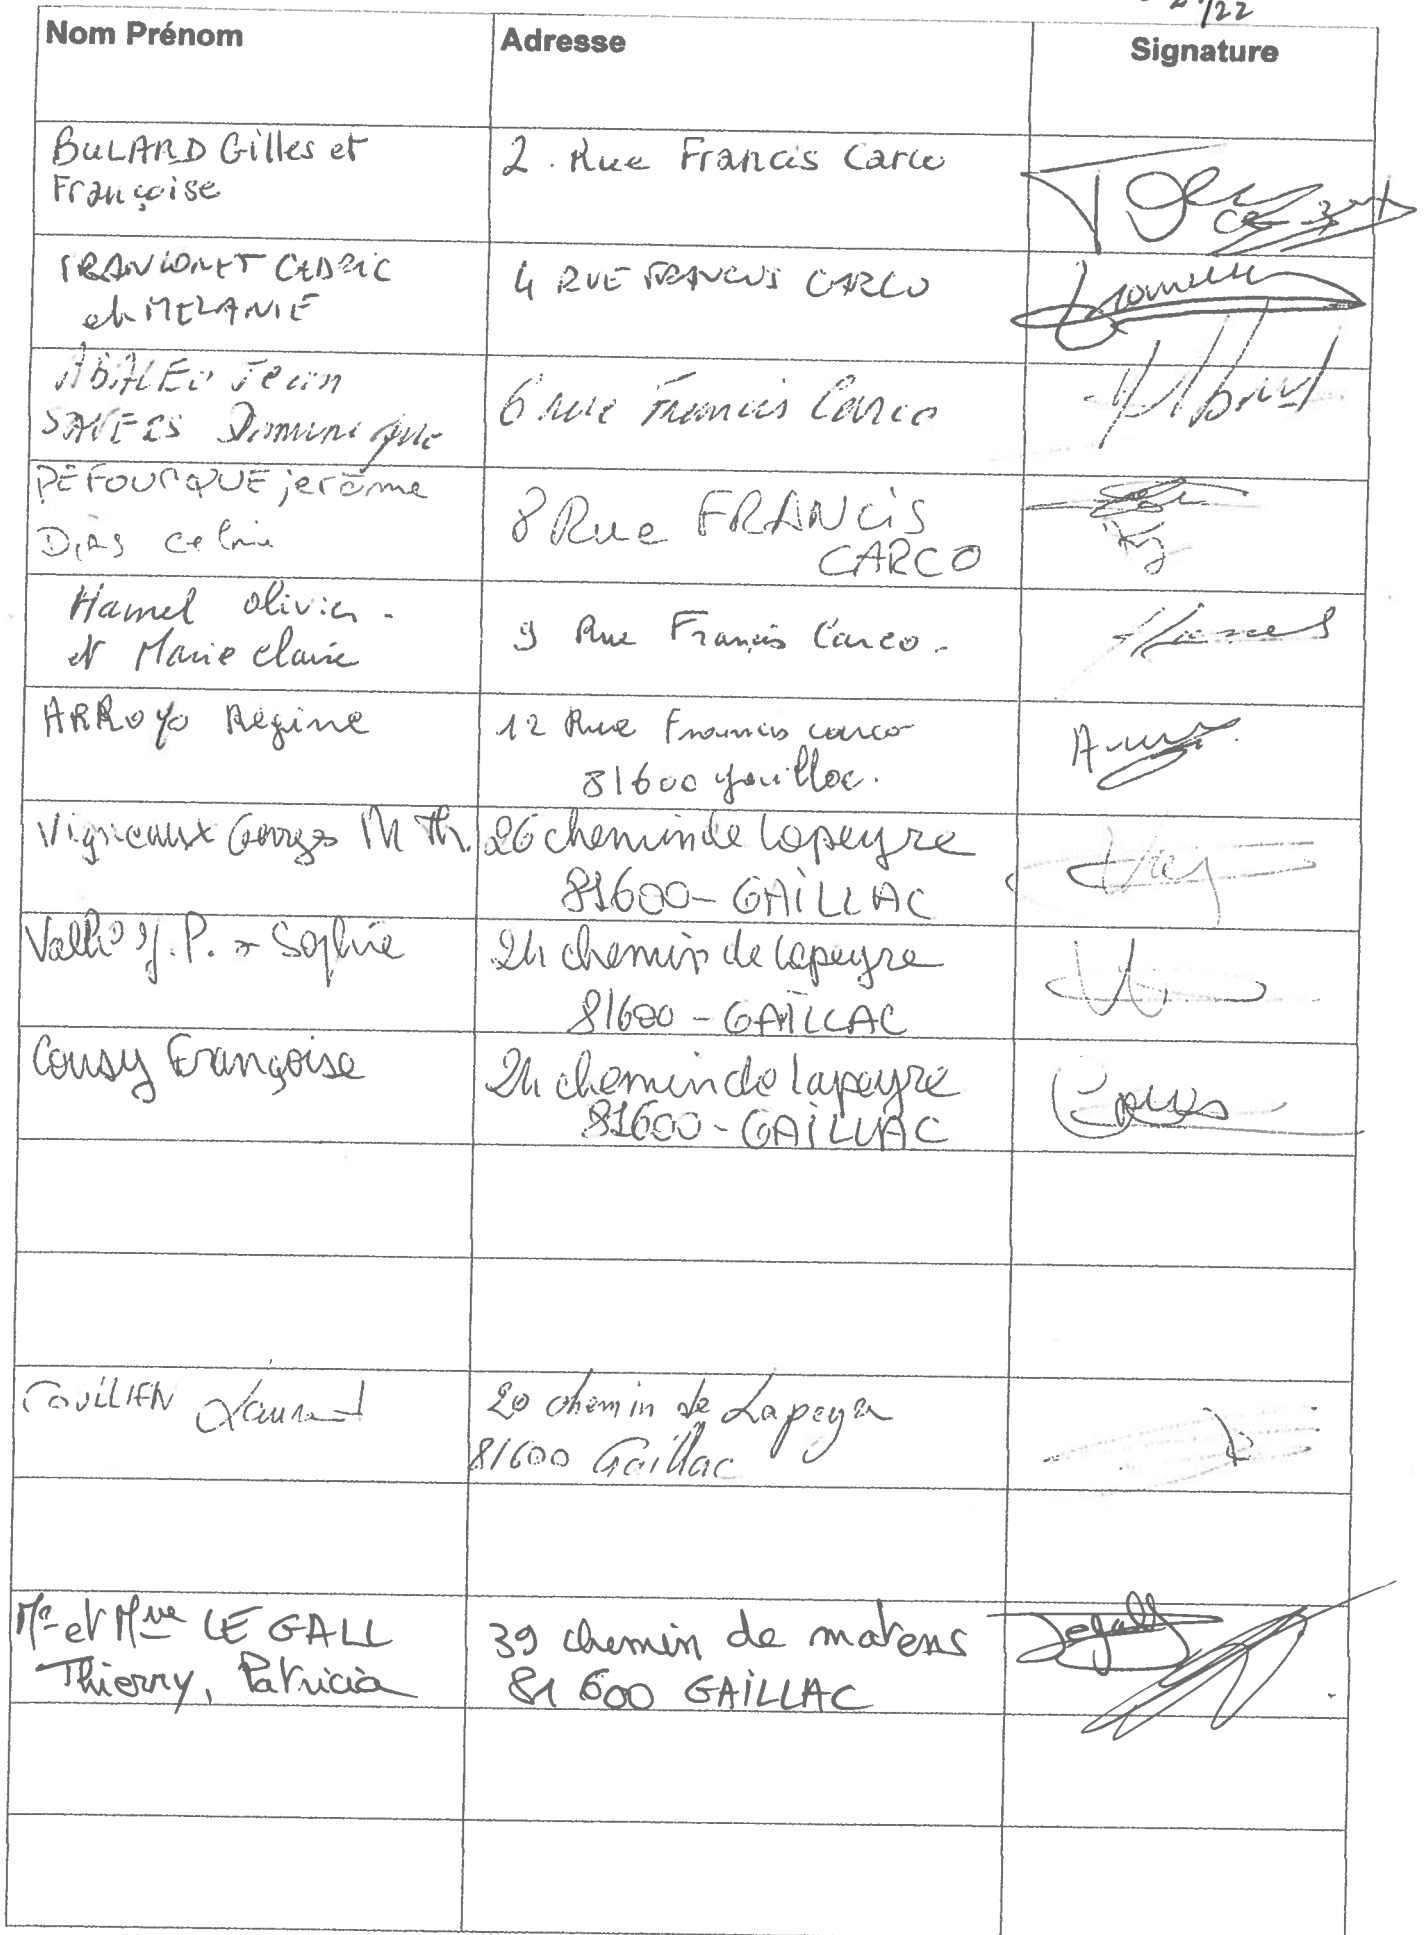 Nom Prénom
Adresse
Signature
BULARD Gilles et
Françoise
2. Rue Francis Carco
CEDRIC
et MELANIE
4 RUE FRANCIS CARCO
Jean
Dominique
6 rue Francis Carco
PEFOURQUE jerome
DiAS Celine
8 Rue FRANCiS
CARCO
Hamel Olivier -
et Marie claire
9 Rue Francis Carco -
ARROYO Regine
12 Rue Francis carco
81600 gaillac.
Vigneaux Georges M Th.
26 chemin de lapeyre
81600 - GAiLLAC
J.P. Sophie
24 chemin de lapeyre
81600 - GAiLLAC
Cousy Françoise
24 chemin de lapeyre
81600 - GAiLLAC
Laurent
20 chemin de Lapeyre
81600 Gaillac
Mr et Mme LE GALL
Thierry, Patricia
39 chemin de matens
81 600 GAiLLAC